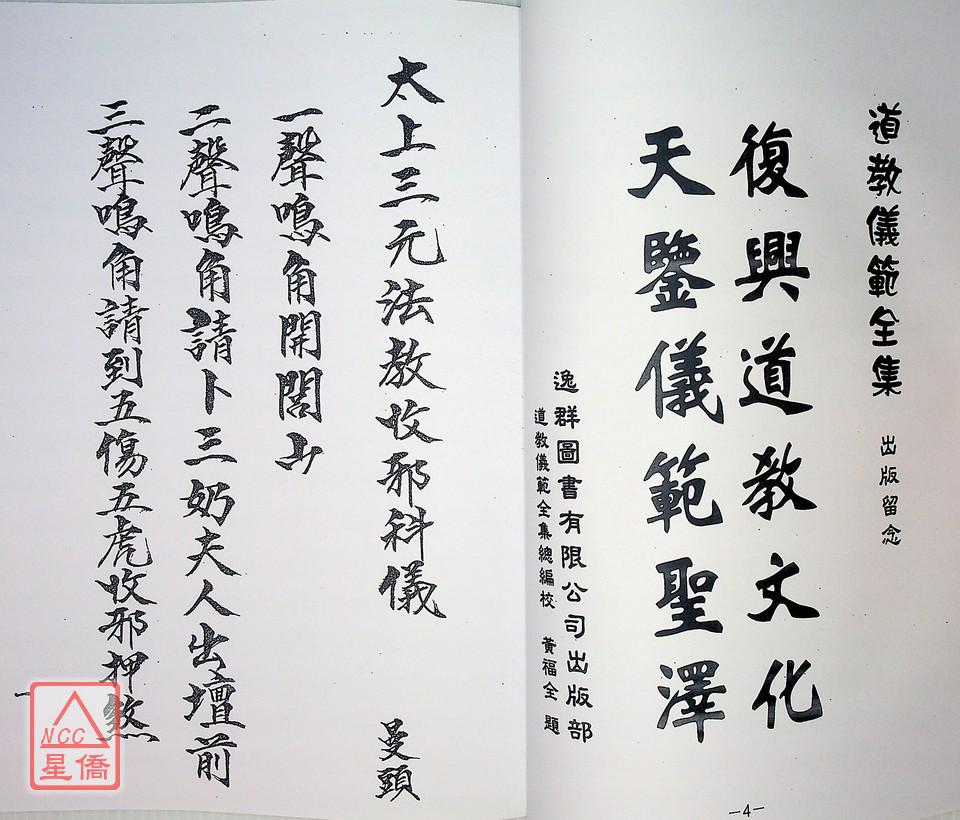 道教儀範全集 出版留念
復興道教文化
天鑒儀範聖澤
逸群圖書有限公司出版部
道教儀範全集總編校 黃福全 題
—4—
太上三元法教收邪科儀 曼頭
一聲鳴角開閭山
二聲鳴角請卜三奶夫人出壇前
三聲鳴角請到五傷五虎收邪押煞
一
NCC
星僑